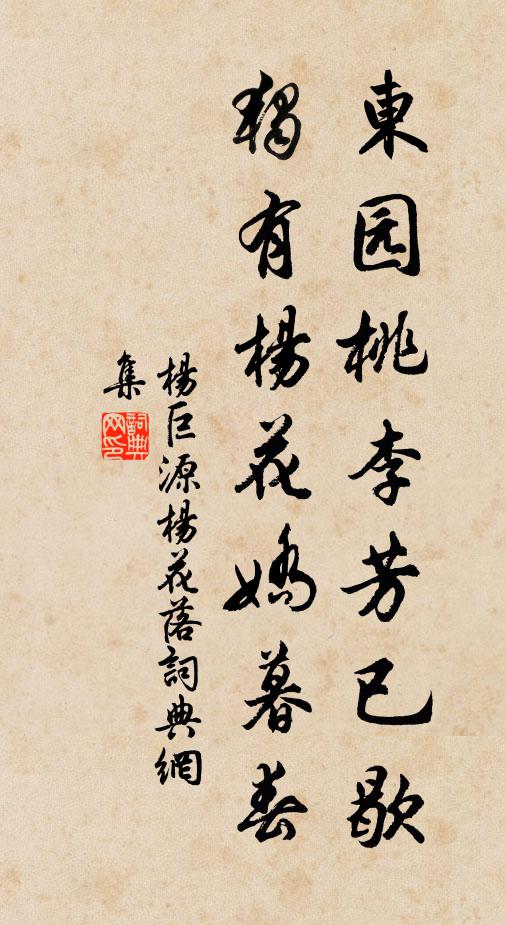 東园桃李芳已歇
獨有楊花嬌暮春
楊巨源楊花落詞典網
集
詞典网印